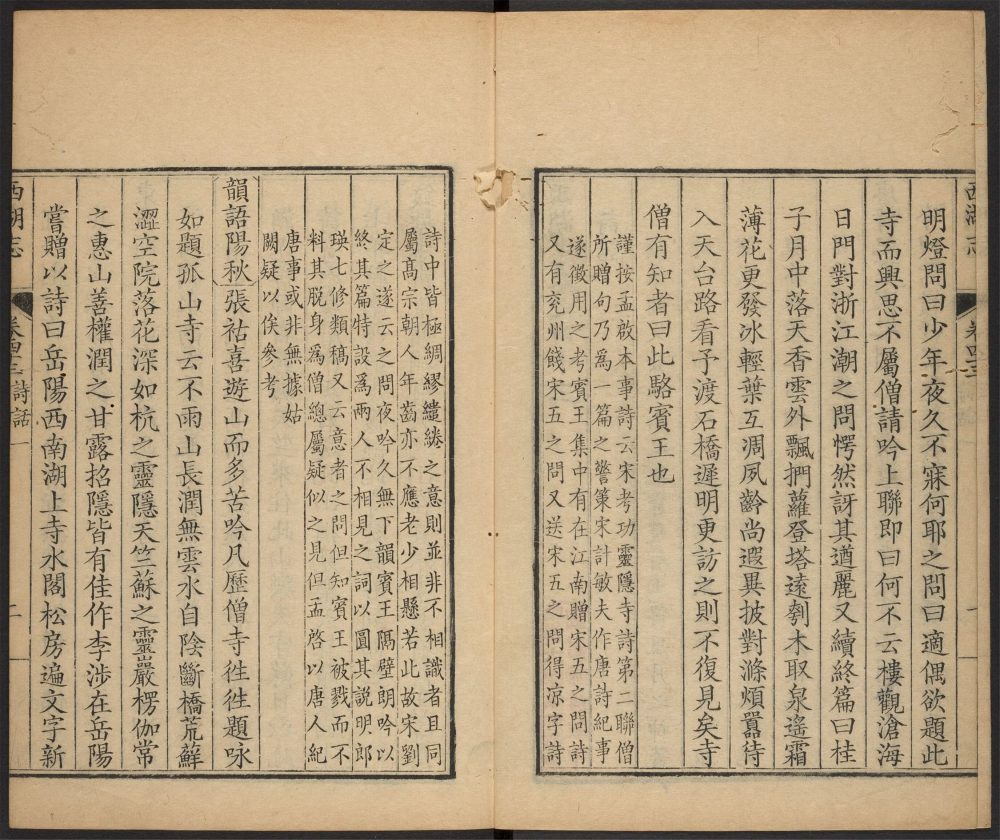 西湖志
卷四十三
一
明燈問曰少年夜久不寐何耶之問曰適偶欲題此
寺而興思不屬僧請吟上聯即曰何不云樓觀滄海
日門對浙江潮之問愕然訝其遒麗又續終篇曰桂
子月中落天香雲外飄捫蘿登塔遠刳木取泉遙霜
薄花更發冰輕葉互凋夙齡尚遐異披對滌煩囂待
入天台路看予渡石橋遲明更訪之則不復見矣寺
僧有知者曰此駱賓王也
謹按孟啟本事詩云宋考功靈隱寺詩第二聯僧
所贈句乃爲一篇之警策宋計敏夫作唐詩紀事
遂徵用之考賓王集中有在江南贈宋五之問詩
又有兖州餞宋五之問又送宋五之問得凉字詩
詩中皆極綢繆繾綣之意則並非不相識者且同
屬高宗朝人年齒亦不應老少相懸若此故宋劉
定之遂云之問夜吟久無下韻賓王隔壁朗吟以
終其篇特設爲兩人不相見之詞以圓其説明郎
瑛七修類稿又云意者之問但知賓王被戮而不
料其脱身爲僧總屬疑似之見但孟啓以唐人紀
唐事或非無據姑
闕疑以俟參考
韻語陽秋張祜喜遊山而多苦吟凡歷僧寺徃徃題咏
如題孤山寺云不雨山長潤無雲水自陰斷橋荒蘚
澀空院落花深如杭之靈隱天竺蘇之靈巖楞伽常
之惠山善權潤之甘露招隱皆有佳作李涉在岳陽
嘗贈以詩曰岳陽西南湖上寺水閣松房遍文字新
西湖志
卷四十三 詩話一
二